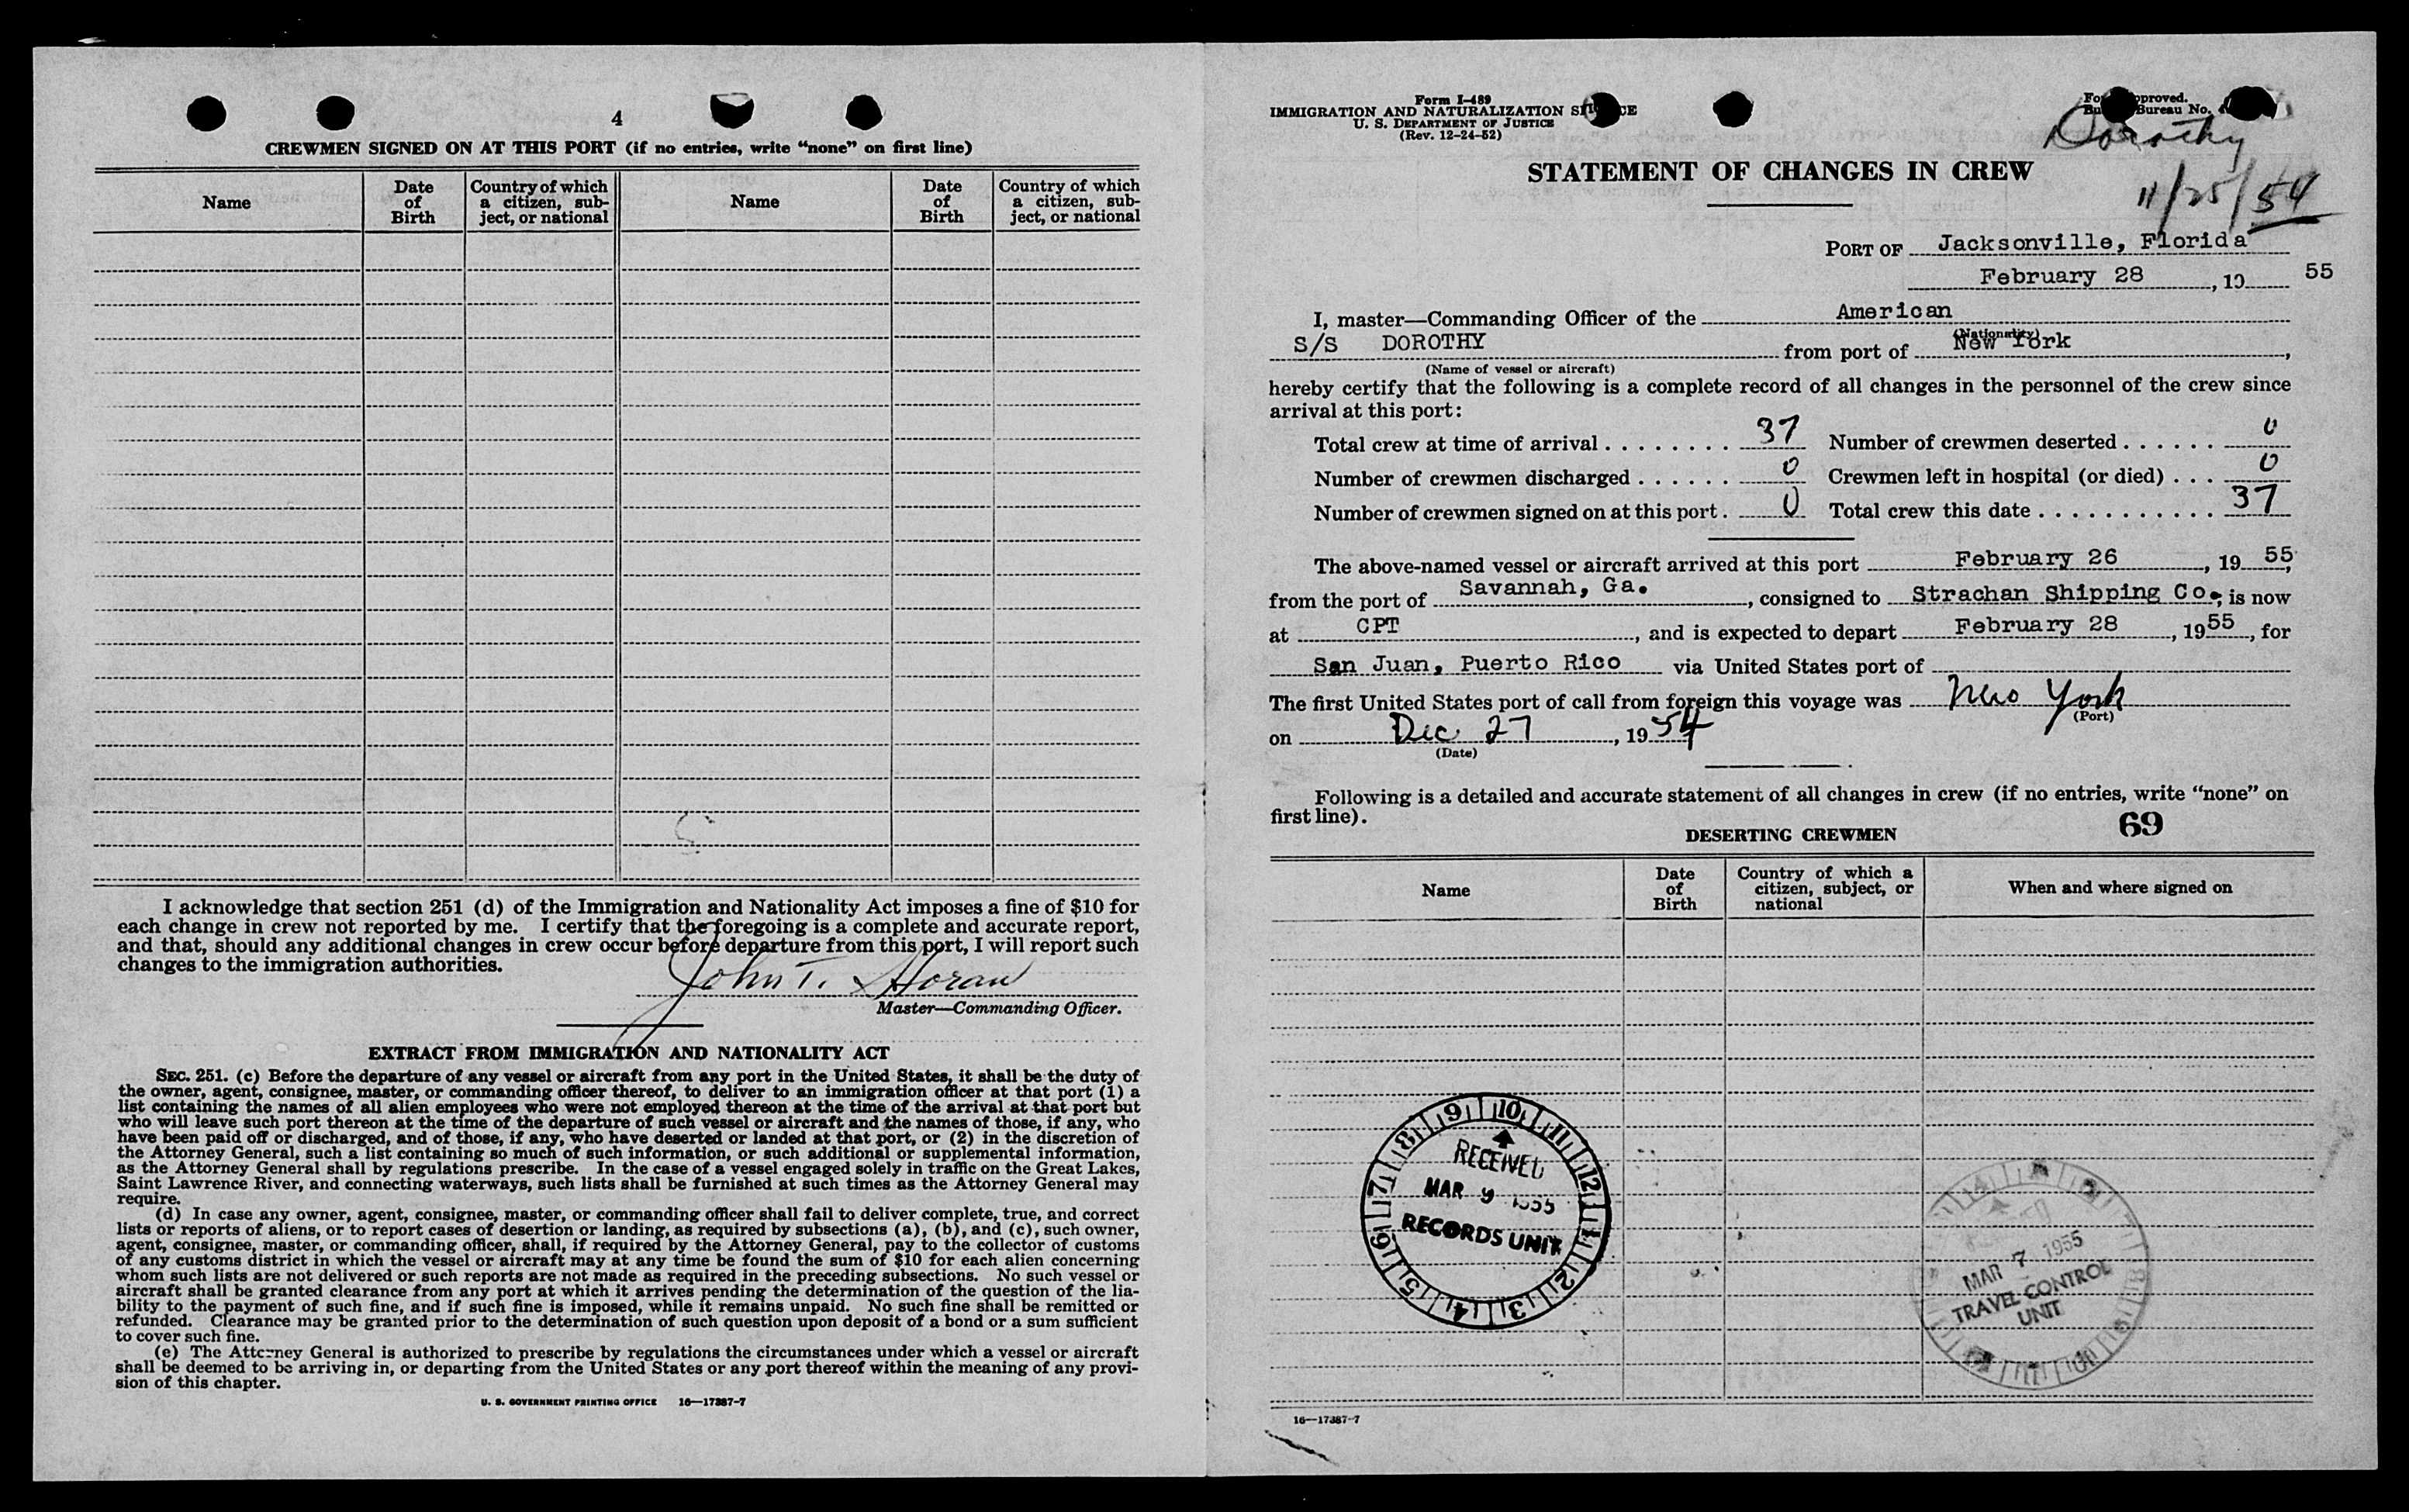 4
CREWMEN SIGNED ON AT THIS PORT (if no entries, write "none" on first line)
Name
Date of Birth
Country of which a citizen, sub-ject, or national
Name
Date of Birth
Country of which a citizen, sub-ject, or national
I acknowledge that section 251 (d) of the Immigration and Nationality Act imposes a fine of $10 for
each change in crew not reported by me. I certify that the foregoing is a complete and accurate report,
and that, should any additional changes in crew occur before departure from this port, I will report such
changes to the immigration authorities.
John T. Horan
Master—Commanding Officer.
EXTRACT FROM IMMIGRATION AND NATIONALITY ACT
SEC. 251. (c) Before the departure of any vessel or aircraft from any port in the United States, it shall be the duty of
the owner, agent, consignee, master, or commanding officer thereof, to deliver to an immigration officer at that port (1) a
list containing the names of all alien employees who were not employed thereon at the time of the arrival at that port but
who will leave such port thereon at the time of the departure of such vessel or aircraft and the names of those, if any, who
have been paid off or discharged, and of those, if any, who have deserted or landed at that port, or (2) in the discretion of
the Attorney General, such a list containing so much of such information, or such additional or supplemental information,
as the Attorney General shall by regulations prescribe. In the case of a vessel engaged solely in traffic on the Great Lakes,
Saint Lawrence River, and connecting waterways, such lists shall be furnished at such times as the Attorney General may
require.
(d) In case any owner, agent, consignee, master, or commanding officer shall fail to deliver complete, true, and correct
lists or reports of aliens, or to report cases of desertion or landing, as required by subsections (a), (b), and (c), such owner,
agent, consignee, master, or commanding officer, shall, if required by the Attorney General, pay to the collector of customs
of any customs district in which the vessel or aircraft may at any time be found the sum of $10 for each alien concerning
whom such lists are not delivered or such reports are not made as required in the preceding subsections. No such vessel or
aircraft shall be granted clearance from any port at which it arrives pending the determination of the question of the lia-
bility to the payment of such fine, and if such fine is imposed, while it remains unpaid. No such fine shall be remitted or
refunded. Clearance may be granted prior to the determination of such question upon deposit of a bond or a sum sufficient
to cover such fine.
(e) The Attorney General is authorized to prescribe by regulations the circumstances under which a vessel or aircraft
shall be deemed to be arriving in, or departing from the United States or any port thereof within the meaning of any provi-
sion of this chapter.
U. S. GOVERNMENT PRINTING OFFICE 16—17387-7
Form I-489
IMMIGRATION AND NATURALIZATION
U. S. DEPARTMENT OF JUSTICE
(Rev. 12-24-52)
Bureau No.
Dorothy
11/25/54
STATEMENT OF CHANGES IN CREW
PORT OF Jacksonville, Florida
February 28, 19 55
I, master—Commanding Officer of the American
(Nationality)
S/S DOROTHY from port of New York,
(Name of vessel or aircraft)
hereby certify that the following is a complete record of all changes in the personnel of the crew since
arrival at this port:
Total crew at time of arrival . . . . . . . . 37 Number of crewmen deserted . . . . . . 0
Number of crewmen discharged . . . . . . 0 Crewmen left in hospital (or died) . . . 0
Number of crewmen signed on at this port . 0 Total crew this date . . . . . . . . . . . 37
The above-named vessel or aircraft arrived at this port February 26, 19 55,
from the port of Savannah, Ga., consigned to Strachan Shipping Co., is now
at CPT, and is expected to depart February 28, 1955, for
San Juan, Puerto Rico via United States port of
The first United States port of call from foreign this voyage was New York
(Port)
on Dec 27, 19 54
(Date)
Following is a detailed and accurate statement of all changes in crew (if no entries, write "none" on
first line).
69
DESERTING CREWMEN
Name
Date of Birth
Country of which a citizen, subject, or national
When and where signed on
9 10 11 12 1 2 3 4 5 6 7 8
RECEIVED
MAR 9 1955
RECORDS UNIT
MAR 7 1955
TRAVEL CONTROL
UNIT
16—17387-7